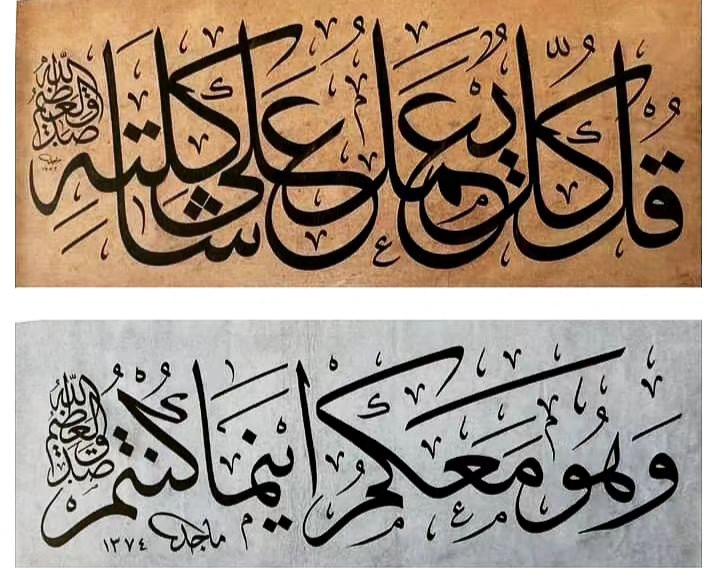 قُل كُلٌّ يَعمَلُ عَلى شاكِلَتِهِ
صدق الله العظيم
وَهُوَ مَعَكُم اَينَما كُنتُم
صدق الله العظيم
ماجد ١٣٧٤